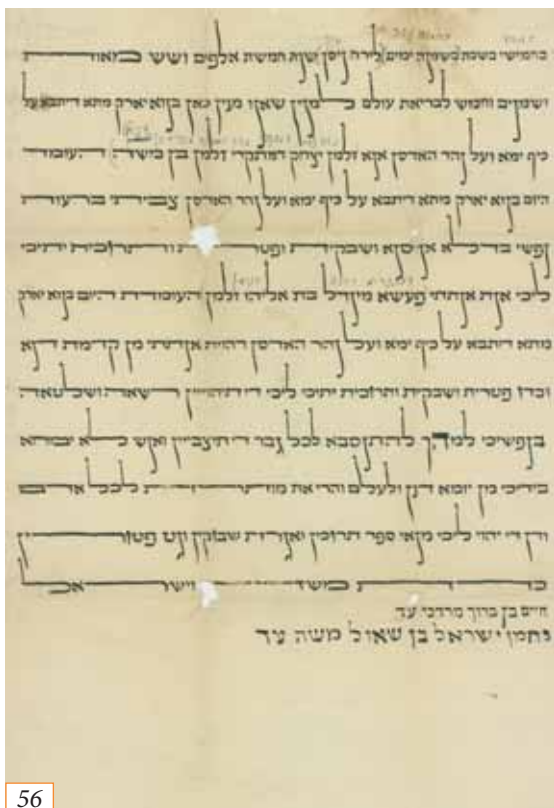 בחמישי בשבת בשמונה ימים לירח ניסן שנת חמשת אלפים ושש מאות
ושמנים וחמש לבריאת עולם למנין שאנו מנין כאן בנוא יארק מתא דיתבא על
כיף ימא ועל נהר האדסן אנא זלמן יצחק דמתקרי זלמן בן מישדה העומד
היום בנוא יארק מתא דיתבא על כיף ימא ועל נהר האדסן צביתי ברעות
נפשי בדלא אניסנא ושבקית ופטרית ותרוכית יתיכי
ליכי אנת אנתתי פעשא מינדל בת אליהו זלמן העומדת היום בנוא יארק
מתא דיתבא על כיף ימא ועל נהר האדסן דהוית אנתתי מן קדמת דנא
וכדו פטרית ושבקית ותרוכית יתיכי ליכי דיתיהוייין רשאה ושלטאה
בנפשיכי למהך להתנסבא לכל גבר דיתיצבייין ואנש לא ימחא
בידיכי מן יומא דנן ולעלם והרי את מותרת לכל אדם
ודן די יהוי ליכי מנאי ספר תרוכין ואגרת שבוקין וגט פטורין
כדת משה וישראל
חיים בן ברוך מרדכי עד
נחמן ישראל בן שאול משה עד
56